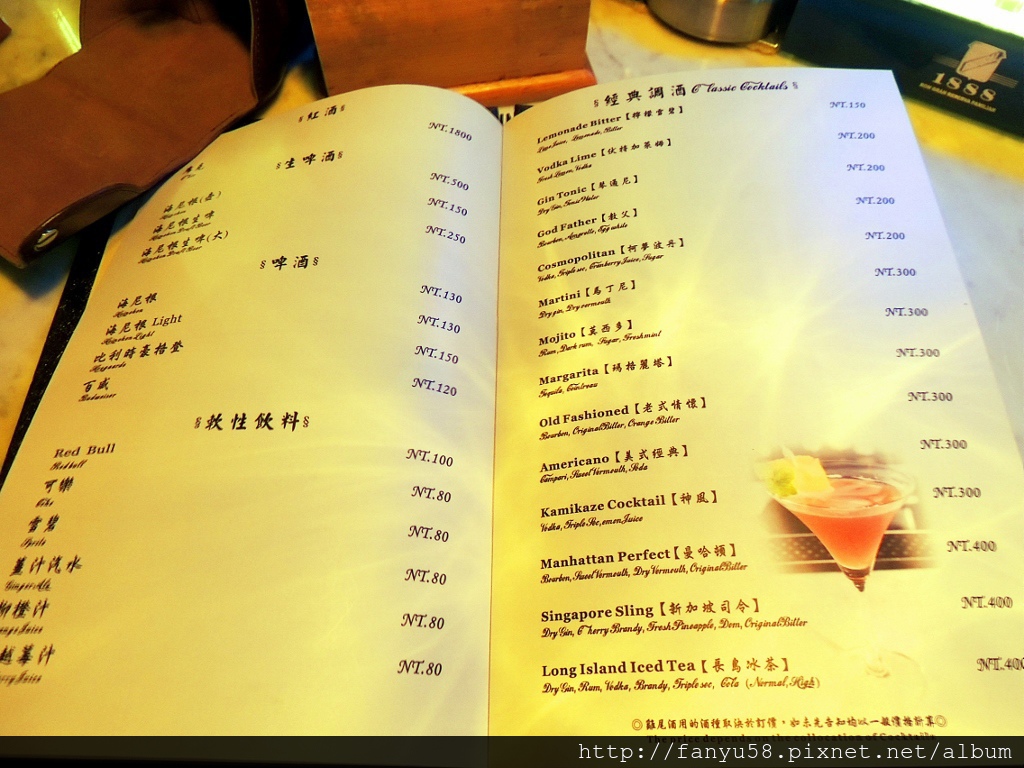 §紅酒§
NT.1800
§生啤酒§
NT.500
海尼根(壺)
Heineken
NT.150
海尼根生啤
NT.250
海尼根生啤(大)
§啤酒§
海尼根
NT.130
海尼根 Light
Heineken Light
NT.130
比利時豪格登
NT.150
百威
Budweiser
NT.120
§軟性飲料§
Red Bull
Red bull
NT.100
可樂
Coke
NT.80
雪碧
Sprite
NT.80
薑汁汽水
Ginger Ale
NT.80
柳橙汁
NT.80
越莓汁
NT.80
§經典調酒 Classic Cocktails§
Lemonade Bitter【檸檬雪碧】
Lime Juice, Lemonade, Bitter
NT.150
Vodka Lime【伏特加萊姆】
NT.200
Gin Tonic【琴通尼】
NT.200
God Father【教父】
NT.200
Cosmopolitan【柯夢波丹】
Vodka, Triple sec, Cranberry Juice, Sugar
NT.200
Martini【馬丁尼】
Dry gin, Dry vermouth
NT.300
Mojito【莫西多】
Rum, Dark rum, Sugar, Fresh mint
NT.300
Margarita【瑪格麗塔】
Tequila, Cointreau
NT.300
Old Fashioned【老式情懷】
Bourbon, Original Bitter, Orange Bitter
NT.300
Americano【美式經典】
Campari, Sweet Vermouth, Soda
NT.300
Kamikaze Cocktail【神風】
Vodka, Triple Sec, emon Juice
NT.300
Manhattan Perfect【曼哈頓】
Bourbon, Sweet Vermouth, Dry Vermouth, Original Bitter
NT.400
Singapore Sling【新加坡司令】
Dry Gin, Cherry Brandy, Fresh Pineapple, Dom, Original Bitter
NT.400
Long Island Iced Tea【長島冰茶】
Dry Gin, Rum, Vodka, Brandy, Triple sec, Cola (Normal, High)
NT.400
◎雞尾酒用的酒種取決於訂價，如未先告知均以一般價格計算◎
The price depends on the collocation of Cocktails
1888
RON GRAN RESERVA FAMILIAR
http://fanyu58.pixnet.net/album